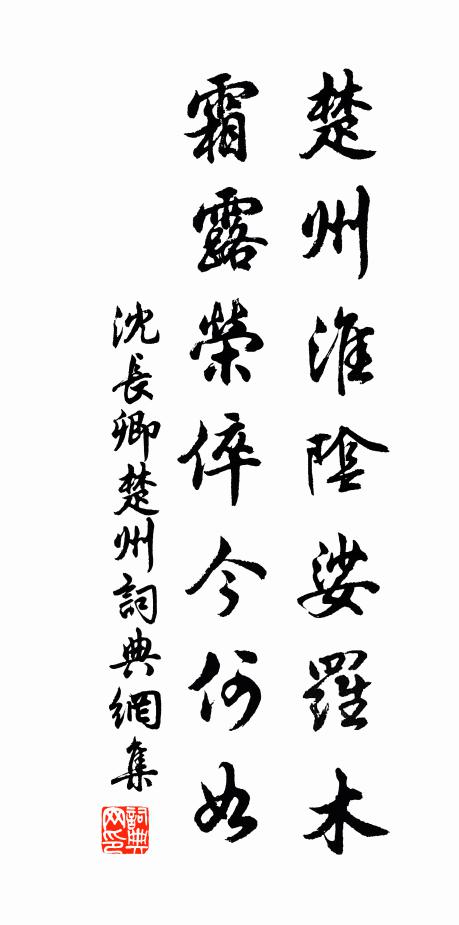 楚州淮陰娑羅木
霜露榮倅今何如
沈長卿楚州詞典網集
詞典網印